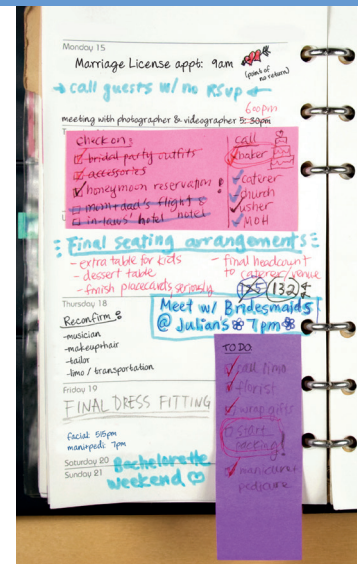 Monday 15
Marriage License appt: 9am
(point of no return)
→ call guests w/ no RSVP ←
6:00pm
meeting with photographer & videographer 5:30pm
check on:
bridal party outfits
accessories
honeymoon reservation!
mom+dad's flight &
in-laws' hotel hotel
call
baker
caterer
church
usher
MOH
Final seating arrangements
- extra table for kids
- dessert table
- finish placecards seriously
- final headcount
to caterer/venue
125 132
Thursday 18
Meet w/ Bridesmaids
@ Julian's 7pm
Reconfirm
-musician
-makeup+hair
-tailor
-limo / transportation
Friday 19
FINAL DRESS FITTING
facial: 515pm
mani+pedi: 7pm
Saturday 20
Sunday 21
Bachelorette
weekend
TO DO
call limo
florist
wrap gifts
start
packing!
manicure+
pedicure